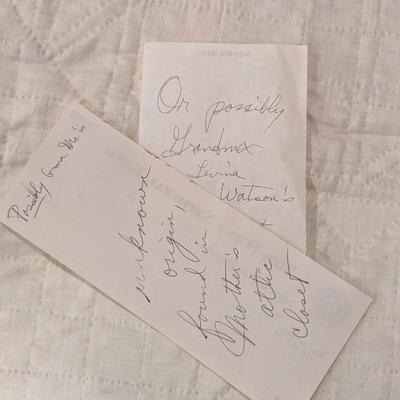 Or possibly
Grandma
Levina
Watson's
Possibly Gma Mc's
unknown
origin,
found in
Mother's
attic
closet